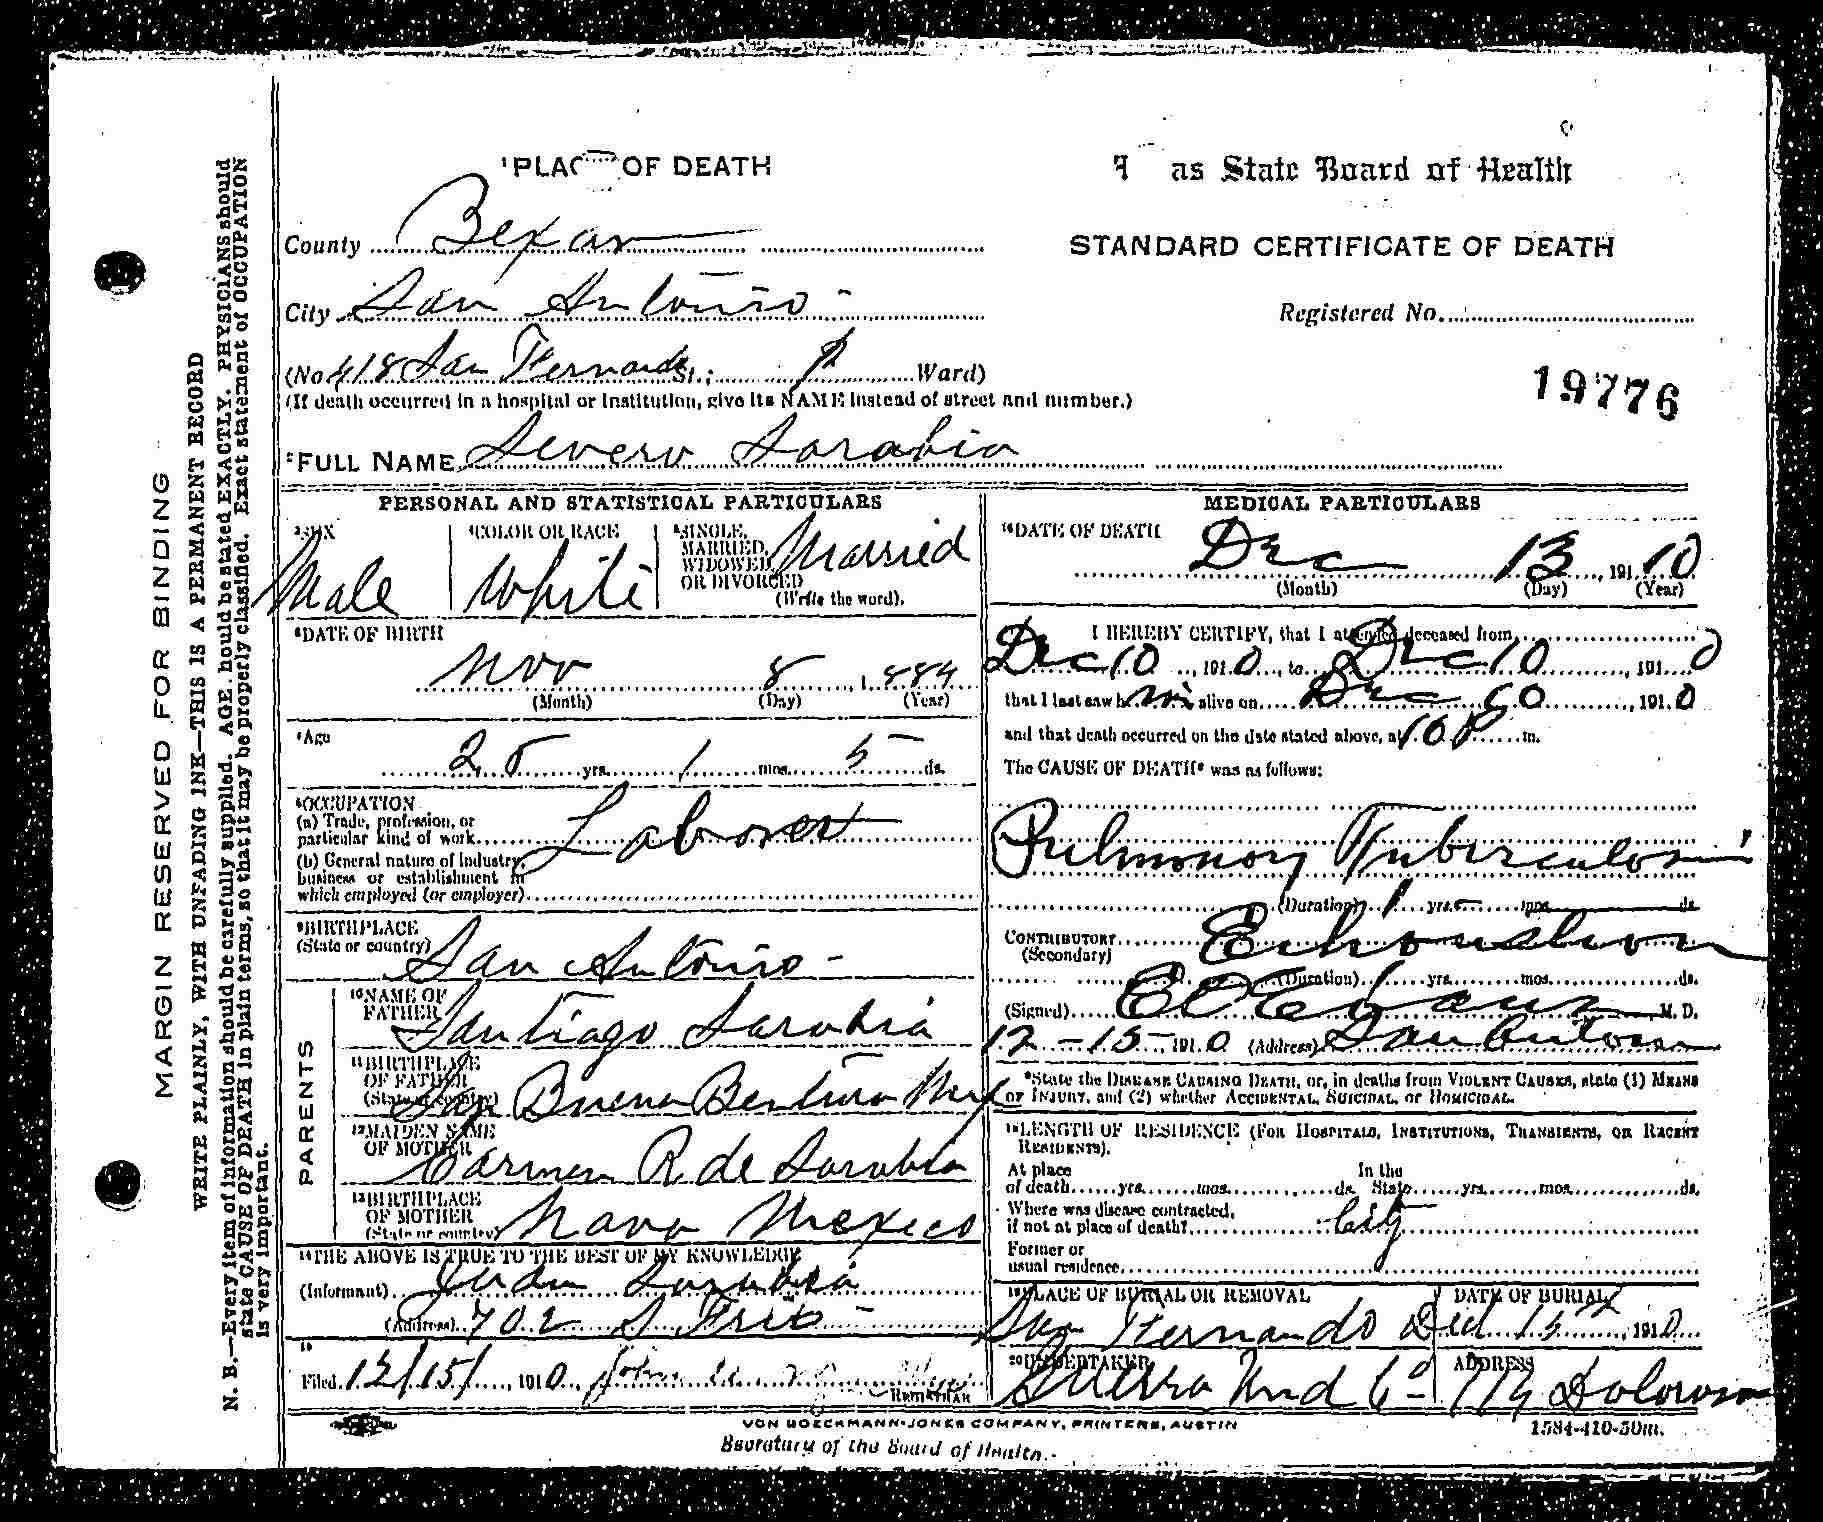 ¹PLAC OF DEATH
as State Board of Health
STANDARD CERTIFICATE OF DEATH
County Bexar
City San Antonio
Registered No.
(No. 418 San Fernando St.; Ward)
(If death occurred in a hospital or institution, give its NAME instead of street and number.)
19776
²FULL NAME Severo Sarabia
PERSONAL AND STATISTICAL PARTICULARS
³SEX
Male
⁴COLOR OR RACE
White
⁵SINGLE, MARRIED, WIDOWED, OR DIVORCED
(Write the word).
Married
⁶DATE OF BIRTH
Nov 8, 1884
(Month) (Day) (Year)
⁷Age
yrs. 1 mos. 5 ds.
⁸OCCUPATION
(a) Trade, profession, or
particular kind of work
Laborer
(b) General nature of industry,
business or establishment in
which employed (or employer)
⁹BIRTHPLACE
(State or country)
San Antonio
PARENTS
¹⁰NAME OF FATHER
Santiago Sarabia
¹¹BIRTHPLACE OF FATHER
(State or country)
San Buena Bentura Mex
¹²MAIDEN NAME OF MOTHER
Carmen R. de Sarabia
¹³BIRTHPLACE OF MOTHER
(State or country)
Nava Mexico
¹⁴THE ABOVE IS TRUE TO THE BEST OF MY KNOWLEDGE
(Informant) Juan Sarabia
(Address) 702 S Frio
¹⁵
Filed 12/15/, 1910 John
REGISTRAR
MEDICAL PARTICULARS
¹⁶DATE OF DEATH
Dec 13, 191 10
(Month) (Day) (Year)
I HEREBY CERTIFY, that I attended deceased from
Dec 10, 1910, to Dec 10, 1910
that I last saw him alive on Dec 10, 1910
and that death occurred on the date stated above, at 10 P m.
The CAUSE OF DEATH* was as follows:
Pulmonary Tuberculosis
(Duration) 1 yrs. mos. ds.
CONTRIBUTORY Exhoustion
(Secondary)
(Duration) yrs. mos. ds.
(Signed) Evans M. D.
12-15-, 1910 (Address) San Antonio
*State the DISEASE CAUSING DEATH, or, in deaths from VIOLENT CAUSES, state (1) MEANS
OF INJURY, and (2) whether ACCIDENTAL, SUICIDAL, or HOMICIDAL.
¹⁸LENGTH OF RESIDENCE (FOR HOSPITALS, INSTITUTIONS, TRANSIENTS, OR RECENT
RESIDENTS).
At place
of death yrs. mos. ds.
In the
State yrs. mos. ds.
Where was disease contracted,
if not at place of death? City
Former or
usual residence
¹⁹PLACE OF BURIAL OR REMOVAL
San Fernando
DATE OF BURIAL
15, 1910
²⁰UNDERTAKER
Guerra Und Co
ADDRESS
Dolorosa
VON BOECKMANN-JONES COMPANY, PRINTERS, AUSTIN
1584-410-50m.
Secretary of the Board of Health.
MARGIN RESERVED FOR BINDING
WRITE PLAINLY, WITH UNFADING INK—THIS IS A PERMANENT RECORD
N. B.—Every item of information should be carefully supplied. AGE should be stated EXACTLY. PHYSICIANS should
state CAUSE OF DEATH in plain terms, so that it may be properly classified. Exact statement of OCCUPATION
is very important.